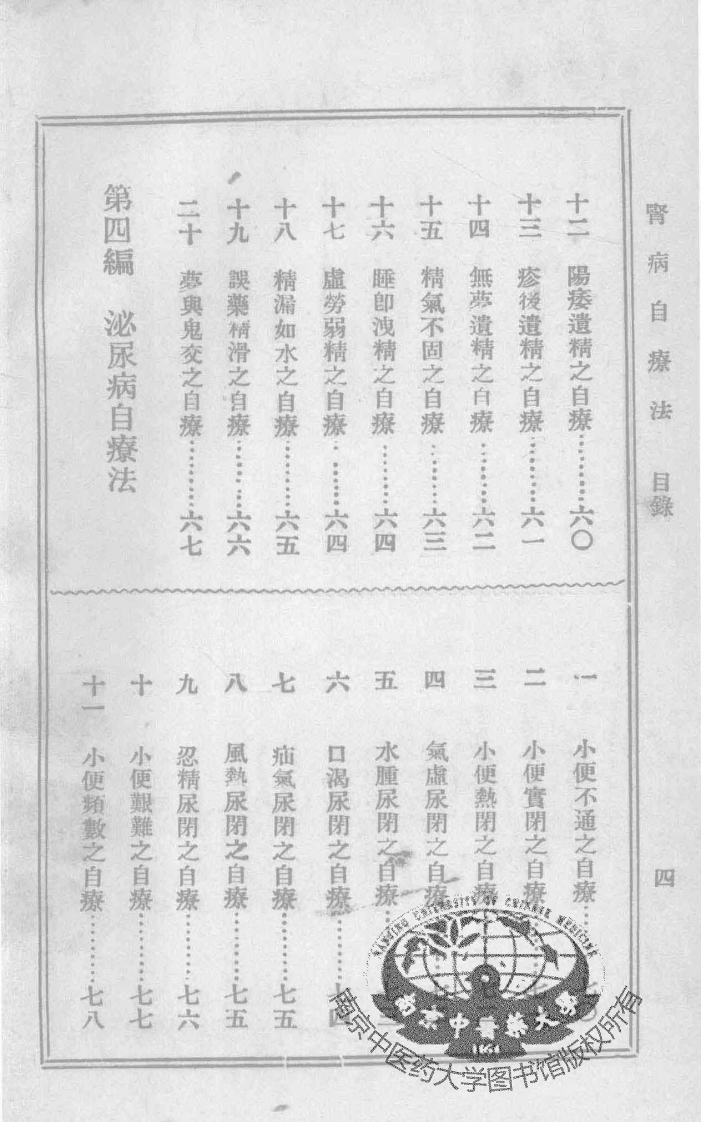 腎病自療法 目錄 四
十二 陽痿遺精之自療………六〇
十三 疹後遺精之自療………六一
十四 無夢遺精之自療………六二
十五 精氣不固之自療………六三
十六 睡卽洩精之自療………六四
十七 虛勞弱精之自療………六四
十八 精漏如水之自療………六五
十九 誤藥精滑之自療………六六
二十 夢與鬼交之自療………六七
第四編 泌尿病自療法
一 小便不通之自療
二 小便實閉之自療
三 小便熱閉之自療
四 氣虛尿閉之自療
五 水腫尿閉之自療
六 口渴尿閉之自療………七四
七 疝氣尿閉之自療………七五
八 風熱尿閉之自療………七五
九 忍精尿閉之自療………七六
十 小便艱難之自療………七七
十一 小便頻數之自療………七八
NANJING UNIVERSITY OF CHINESE MEDICINE
南京中醫藥大學
1954
南京中医药大学图书馆版权所有